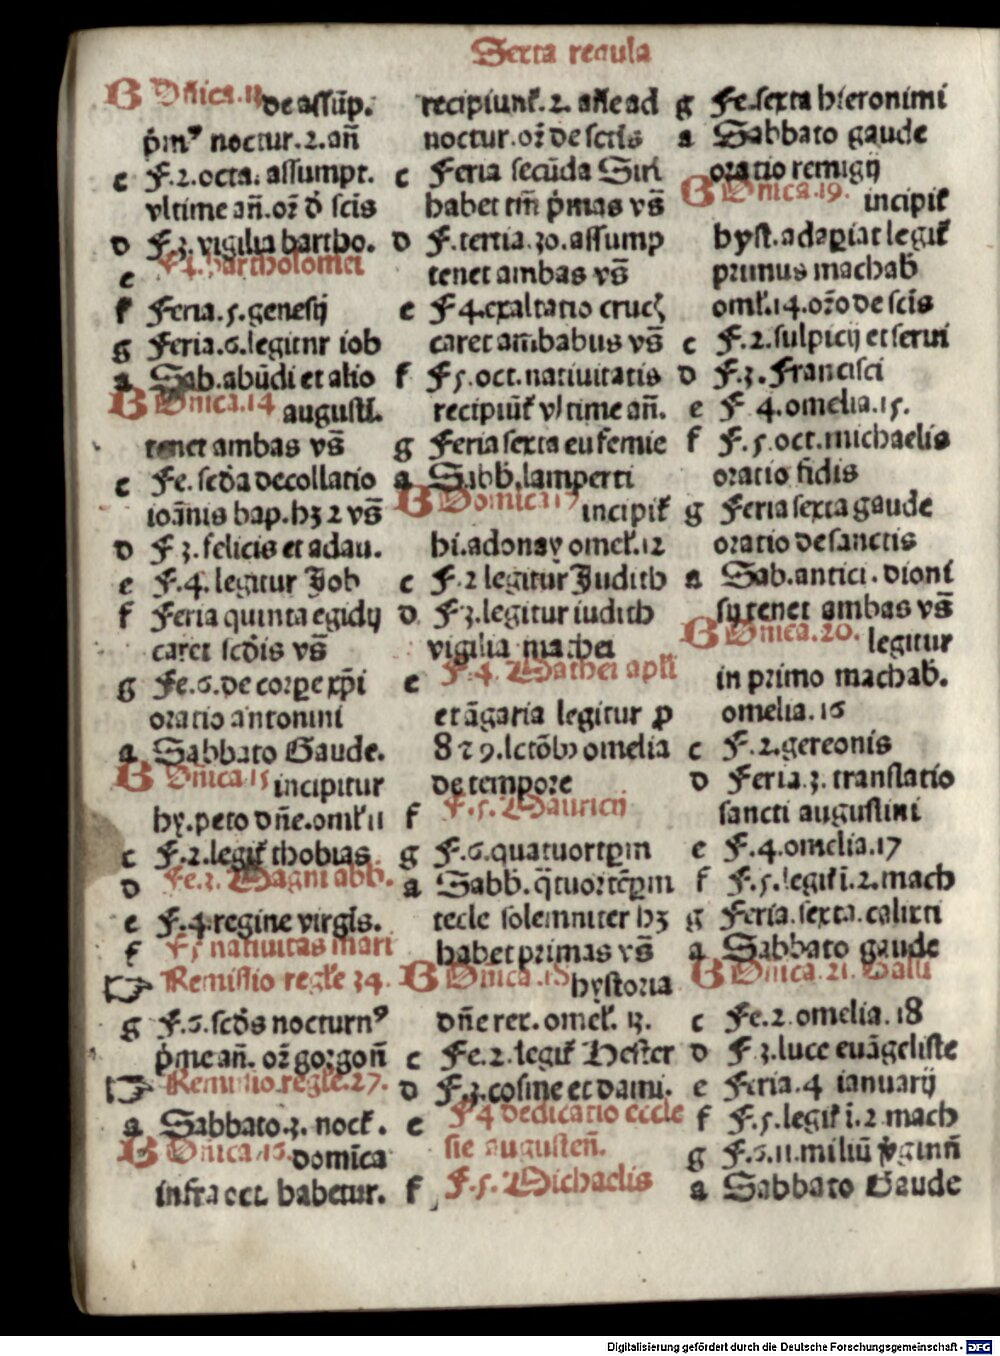 Sexta regula
B Dñica.13 de assūp.
p̄mꝰ noctur.2.añ
c F.2.octa. assumpt.
vltime añ.oꝛ̄ ō scīs
d F.3. vigilia bartho.
e F4.bartholomei
f Feria.5.genesij
g Feria.6.legitnr iob
a Sab.abūdi et alio
B Dñica.14 augustī.
tenet ambas vs̄
c Fe. scd̄a decollatio
ioānis bap.hꝫ 2 vs̄
d F 3. felicis et adau.
e F.4. legitur Job
f Feria quinta egidij
caret scd̄is vs̄
g Fe.6.de corꝑe xp̄i
oratio antonini
a Sabbato Gaude.
B Dñica 15 incipitur
hy.peto dñe.oml̄ 11
c F.2.legiť thobias
d Fe.3. Magni abb.
e F.4.regine virgīs.
f F5 natiuitas mari
☞ Remissio regl̄e 34.
g F.6.scd̄s nocturnꝰ
p̄me añ. oꝛ̄ goꝛgoñ
☞ Remissio.regl̄e.27.
a Sabbato.3. nocť.
B Dñica.16. domīca
infra oct. habetur.
recipiunť.2. añe ad
noctur.oꝛ̄ de sctīs
c Feria secūda Siri
habet tm̄ p̄mas vs̄
d F.tertia.30.assump
tenet ambas vs̄
e F 4.exaltatio crucꝭ
caret am̄babus vs̄
f F5.oct.natiuitatis
recipiūť vltime añ.
g Feria sexta eufemie
a Sabb̄.lamperti
B Domica 17 incipiť
hi.adonay omel̄.12
c F.2 legitur Judith
d F3.legitur iudith
vigilia mathei
e F.4. Mathei apl̄i
et āgaria legitur ꝑ
8 ⁊ 9.lctōb) omelia
de tempore
f F.5. Mauricij
g F.6.quatuortꝑm
a Sabb. q̄tuoꝛtēꝑm
tecle solemniter hꝫ
habet primas vs̄
B Dñica.18 hystoria
dñe rex. omel̄. 13.
c Fe.2. legiť Hester
d F.3.cosme et dami.
e F4 dedicatio eccle
sie augusteñ.
f F.5. Michaelis
g Fe.sexta hieronimi
a Sabbato gaude
oratio remigij
B Dñica.19. incipiť
hyst.adaꝑiat legiť
primus machab̄
oml̄.14.oꝛ̄o de scīs
c F.2.sulpicij et serui
d F.3. Francisci
e F 4.omelia.15.
f F.5.oct.michaelis
oratio fidis
g Feria sexta gaude
oratio de sanctis
a Sab.antici. dioni
sij tenet ambas vs̄
B Dñica.20. legitur
in primo machab.
omelia.16
c F.2.gereonis
d Feria.3. translatio
sancti augustini
e F.4.omelia.17
f F.5.legiť i.2.mach
g Feria.sexta.calixti
a Sabbato gaude
B Dñica.21. Galli
c Fe.2 omelia.18
d F 3.luce euāgeliste
e Feria.4 ianuarij
f F.5.legiť i.2 mach
g F.6.11.miliū v̄ginū
a Sabbato Gaude
Digitalisierung gefördert durch die Deutsche Forschungsgemeinschaft - DFG